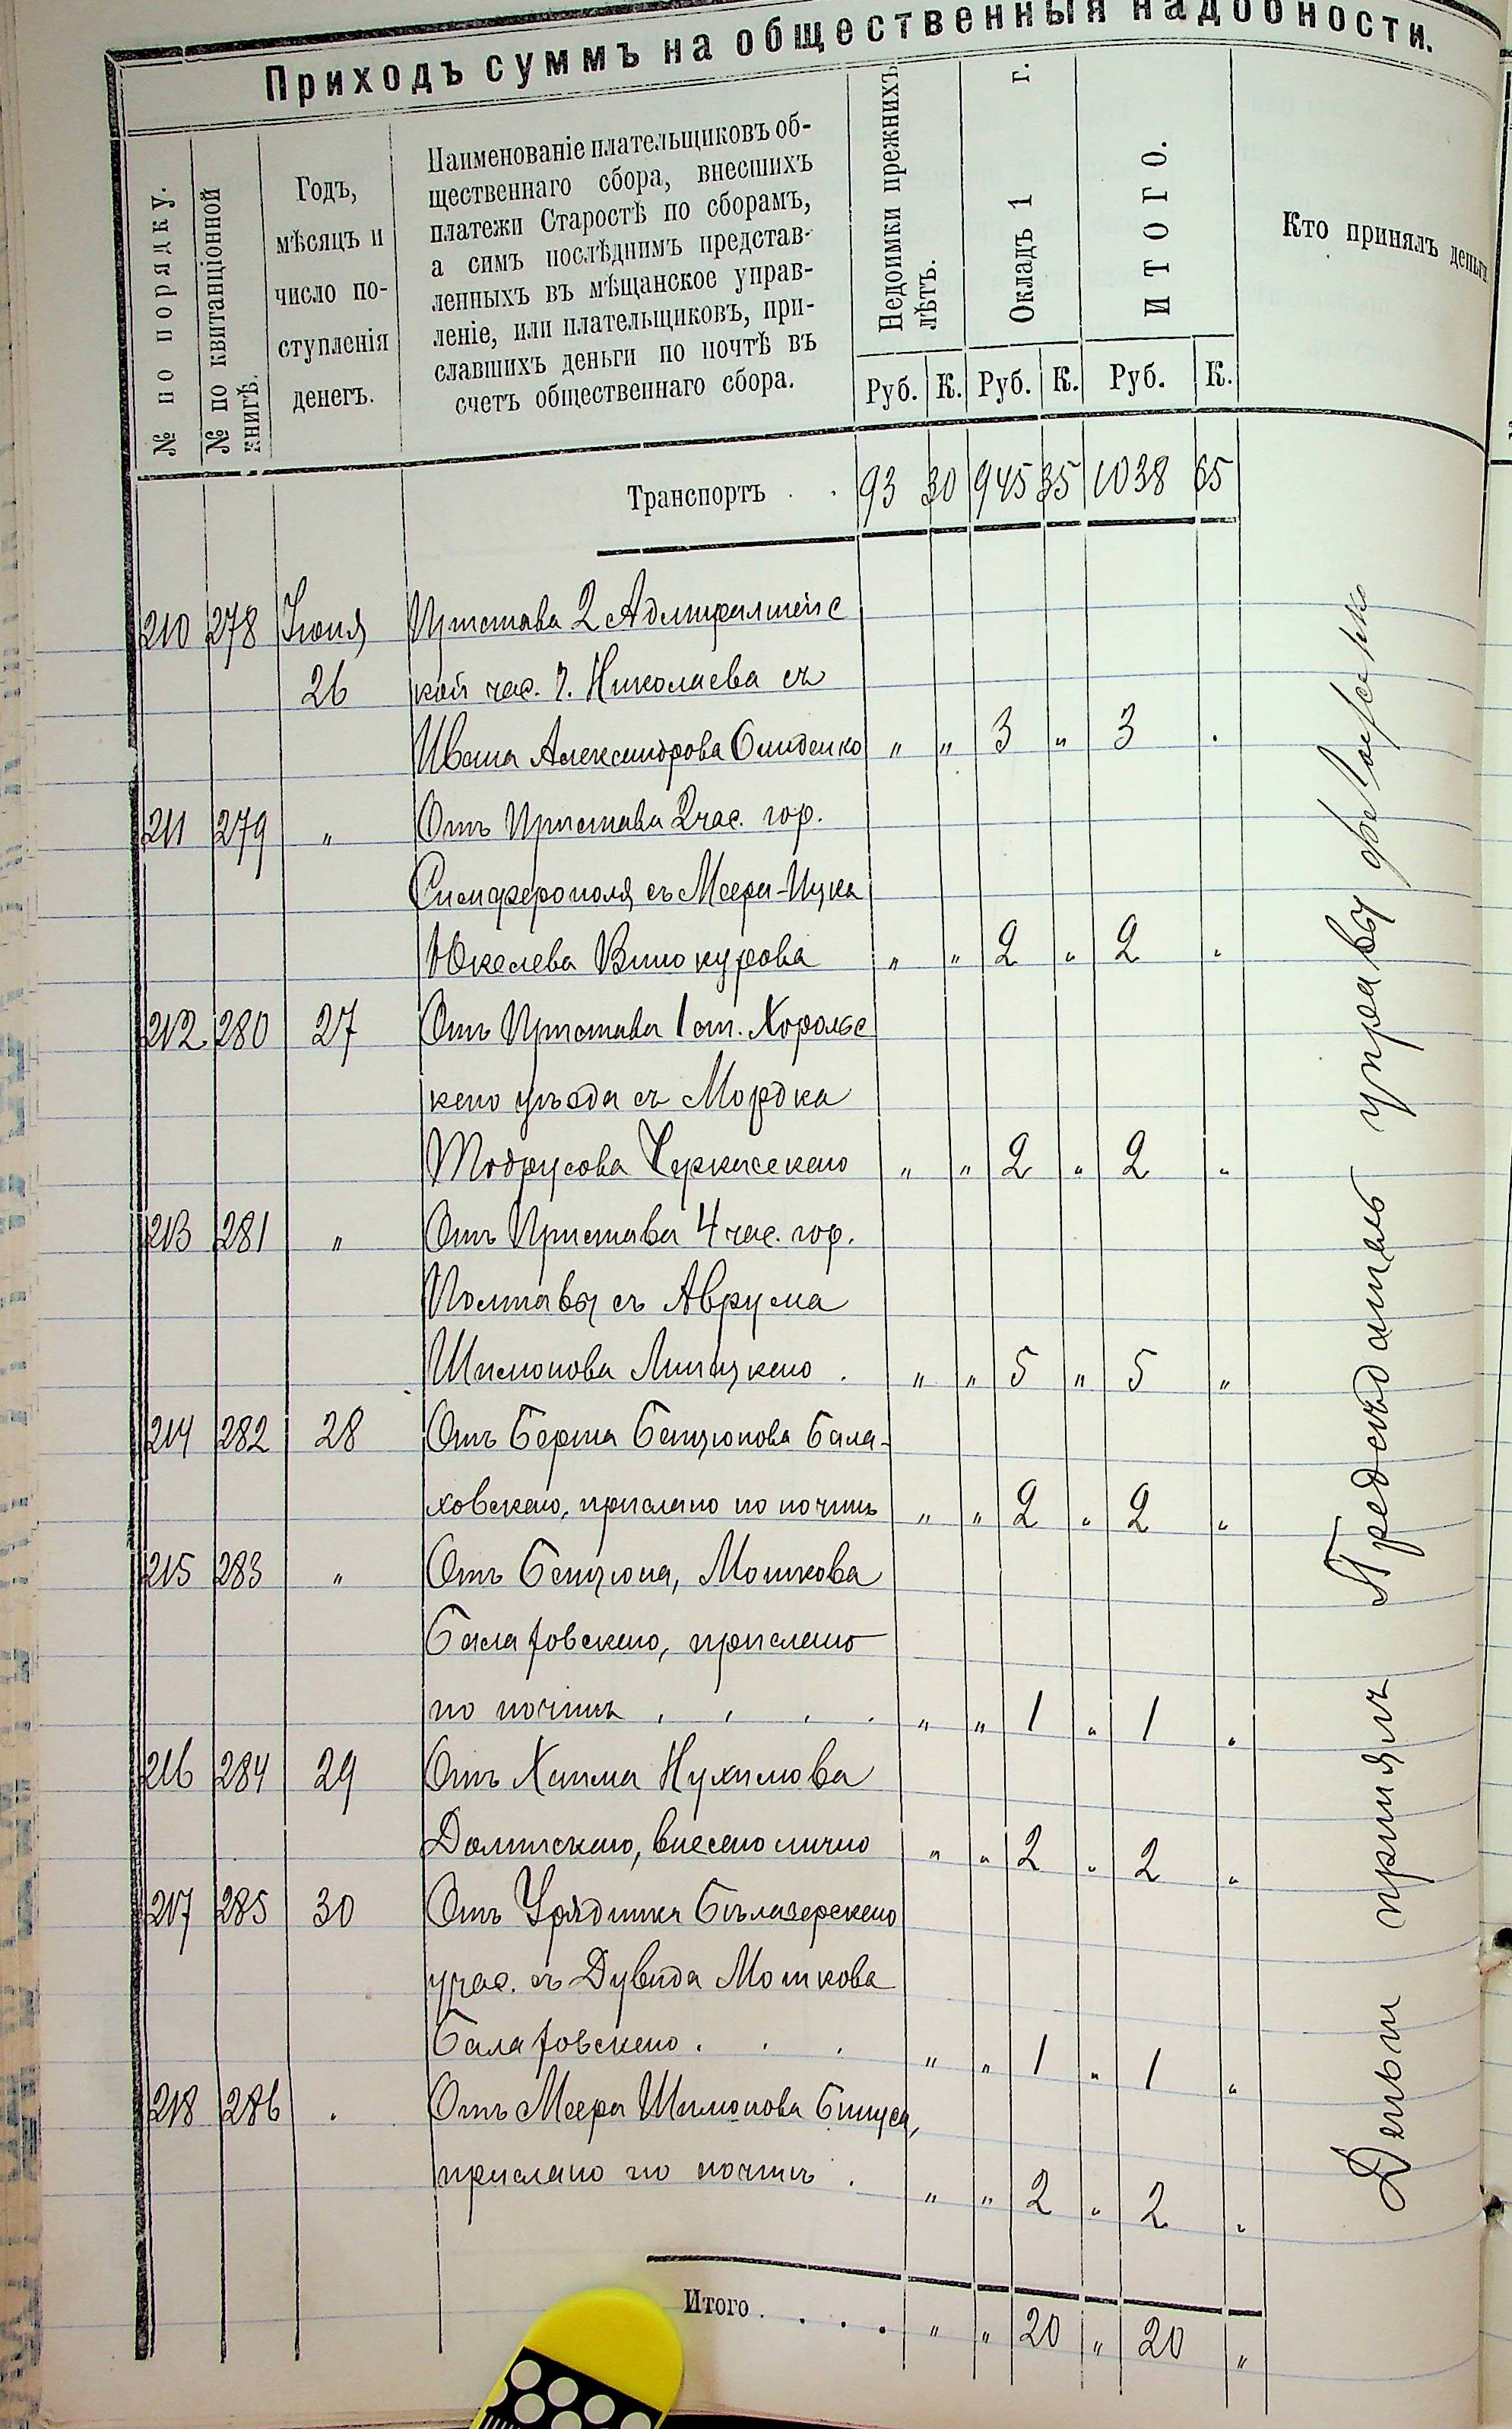 Приходъ суммъ на общественныя надобности.
№ по порядку.
№ по квитанціонной
книгѣ.
Годъ,
мѣсяцъ и
число по-
ступленія
денегъ.
Наименованіе плательщиковъ об-
щественнаго сбора, внесшихъ
платежи Старостѣ по сборамъ,
а симъ послѣднимъ представ-
ленныхъ въ мѣщанское управ-
леніе, или плательщиковъ, при-
славшихъ деньги по почтѣ въ
счетъ общественнаго сбора.
Недоимки прежнихъ
лѣтъ.
Окладъ 1 г.
ИТОГО.
Кто принялъ деньги
Руб. К. Руб. К. Руб. К.
Транспортъ . . 93 30 945 35 1038 65
210 278 Іюня Пристава 2 Адмиралтейс
26 кой час. г. Николаева съ
Ивана Александрова " " 3 " 3 .
211 279 " Отъ Пристава 2 час. гор.
Симферополя съ Меера-Ицка
Юкелева Винокурова " " 2 " 2 "
212 280 27 Отъ Пристава 1 ст. Хорольс
каго уѣзда съ Мордка
Тодрусова Черкасскаго " " 2 " 2 "
213 281 " Отъ Пристава 4 час. гор.
Полтавы съ Аврума
Шимонова Липецкаго . " " 5 " 5 "
214 282 28 Отъ Берка Бенціонова Бала-
ховскаго, прислано по почтѣ " " 2 " 2 "
215 283 " Отъ Бенціона, Мошкова
Балаховскаго, прислано
по почтѣ . . . . " " 1 " 1 "
216 284 29 Отъ Хаима Нухимова
Долинскаго, внесено лично " " 2 " 2 "
217 285 30 Отъ Урядника Бѣлазерскаго
учас. съ Дувида Мошкова
Балаховскаго . . . " " 1 " 1 "
218 286 . Отъ Меера Шимонова
прислано по почтѣ . " " 2 " 2 "
Итого . . . . " " 20 " 20 "
Деньги принялъ Предсѣдатель управы